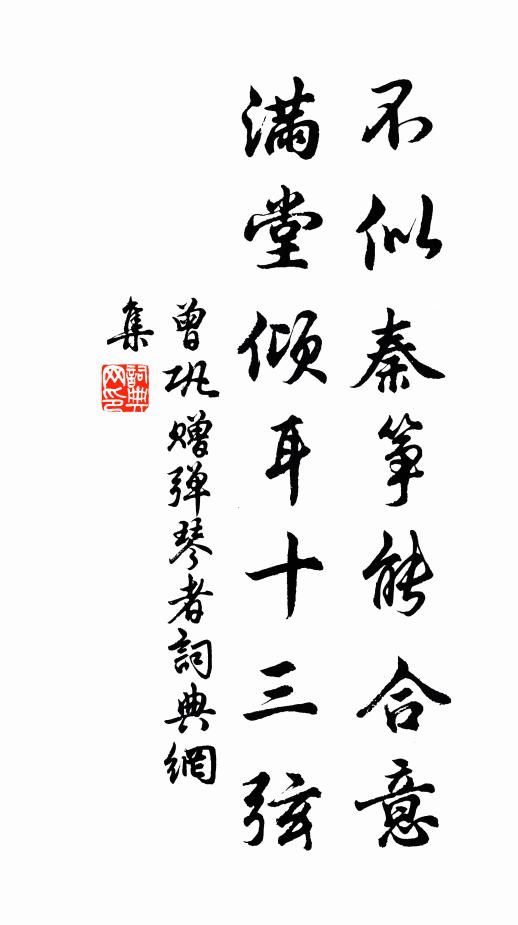 不似秦筝能合意
满堂倾耳十三弦
曾巩赠弹琴者詞典網
集
詞典
网印